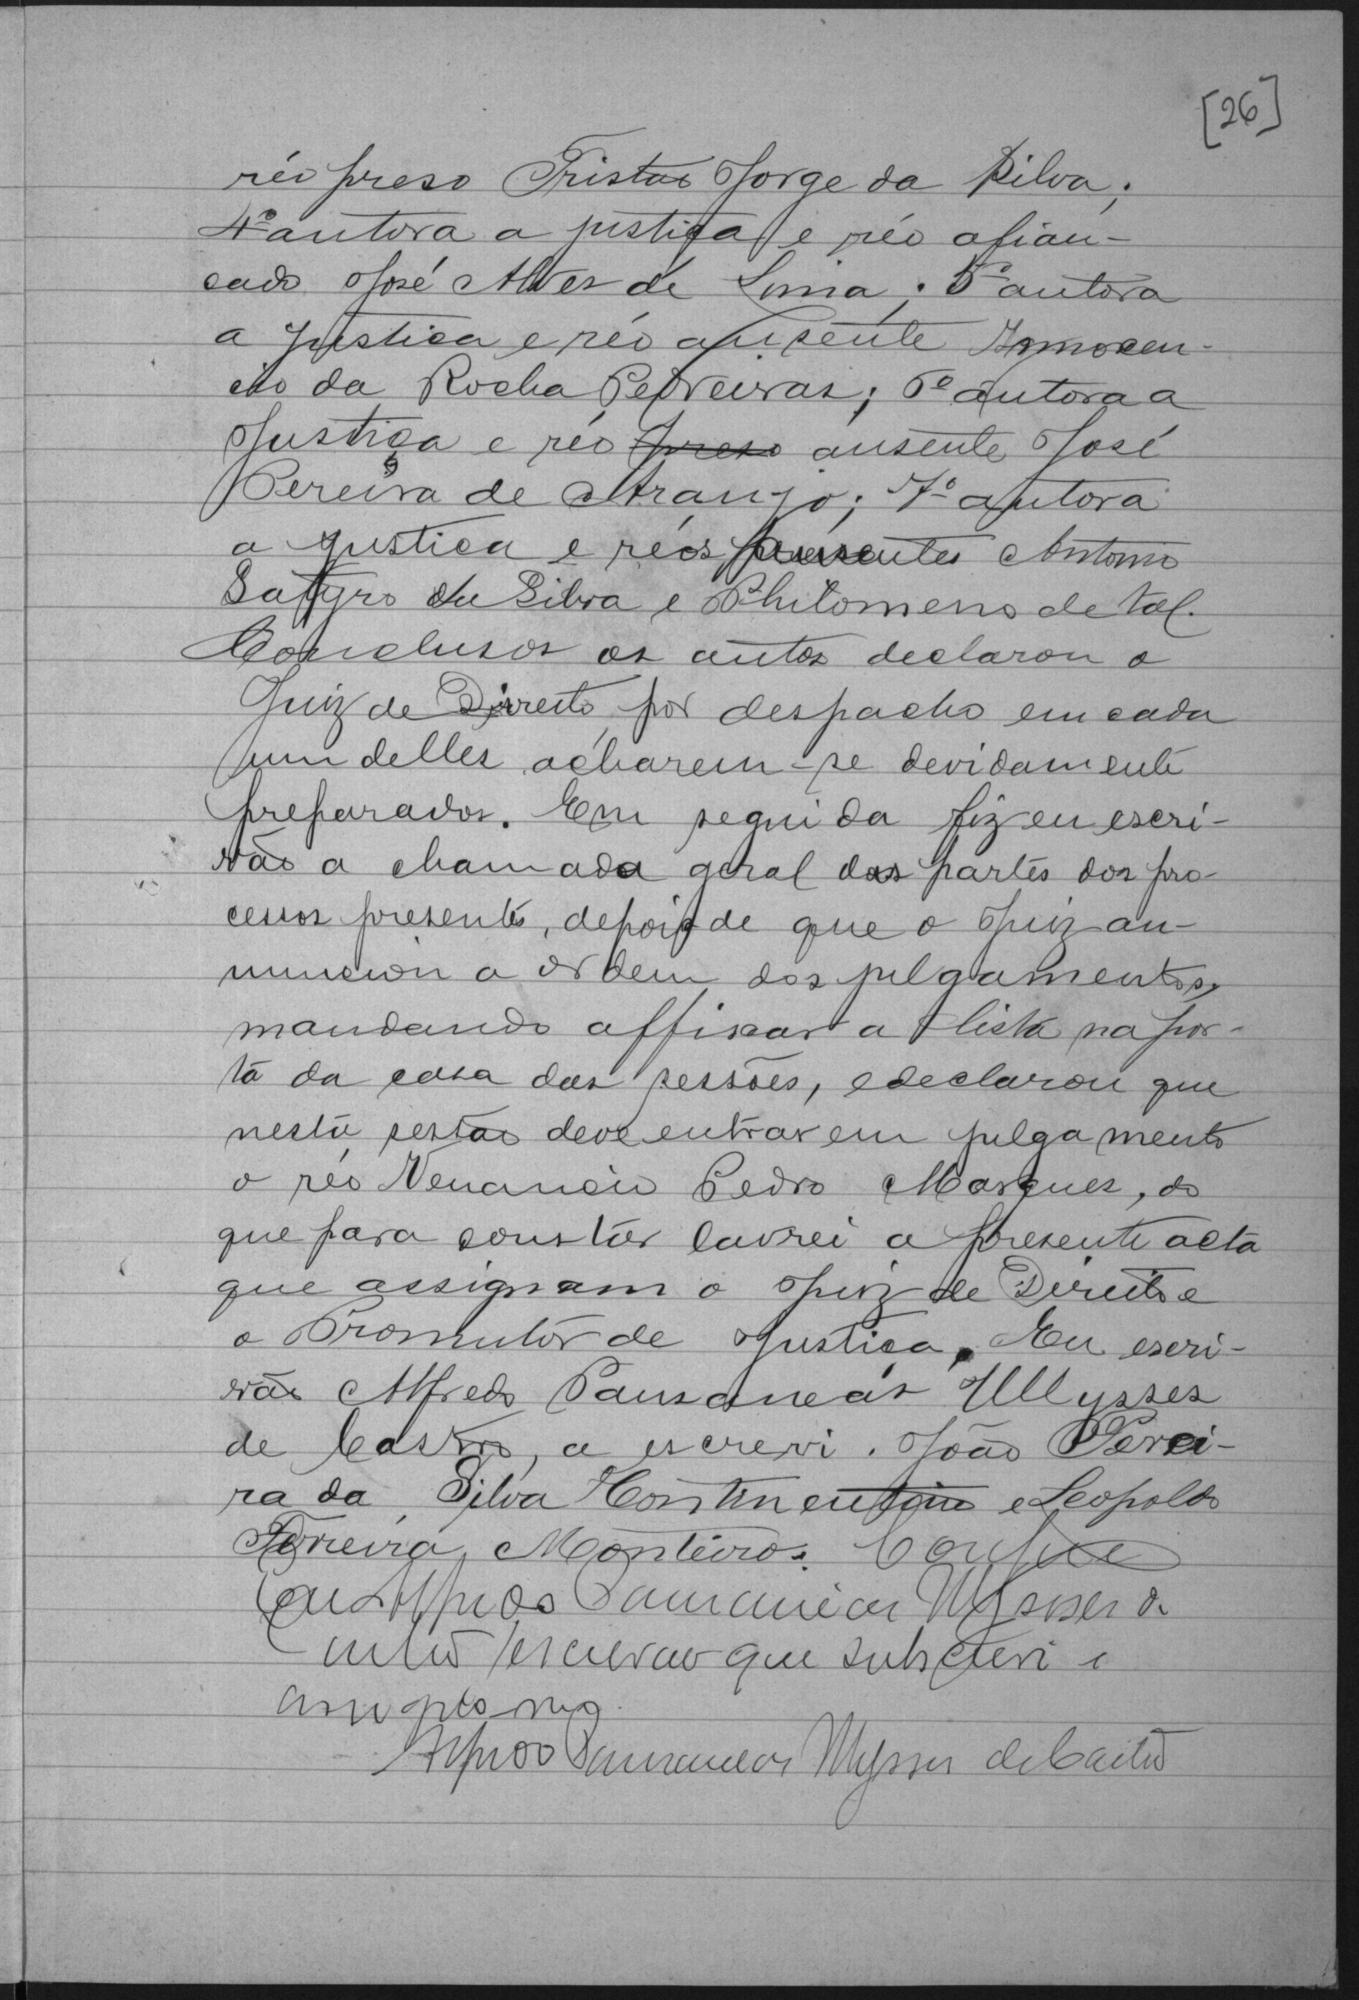 [26]
réo preso Tristão Jorge da Silva;
4º autora a justiça e réo afian-
cado José Alves de Lima; 5º autora
a justica e réo ausente Innocen-
cio da Rocha Pedreiras; 6º autora a
Justiça e réo preso ausente José
Pereira de Araujo; 7º autora
a justica e réos ausentes Antonio
Satyro da Silva e Philomeno de tal.
Conclusos os autos declarou o
Juiz de Direito por despacho em cada
um delles acharem-se devidamente
preparados. Em seguida fiz eu escri-
vão a chamada geral das partes dos pro-
cessos presentes, depois de que o Juiz an-
nunciou a ordem dos julgamentos,
mandando affixar a lista na por-
ta da casa das sessões, e declarou que
nesta sessão deve entrar em julgamento
o réo Venancio Pedro Marques, do
que para constar lavrei a presente acta
que assignam o Juiz de Direito e
o Promutor de Justiça. Eu escri-
vão Alfredo Pausaneas Ullysses
de Castro, a escrevi. João Perei-
ra da Silva Continentino e Leopoldo
Ferreira Monteiro. Confere
Eu Alfredo Pausaneas Ulysses de
Castro escrivão que subscrevi e
assigno
Alfredo Pausaneas Ulysses de Castro